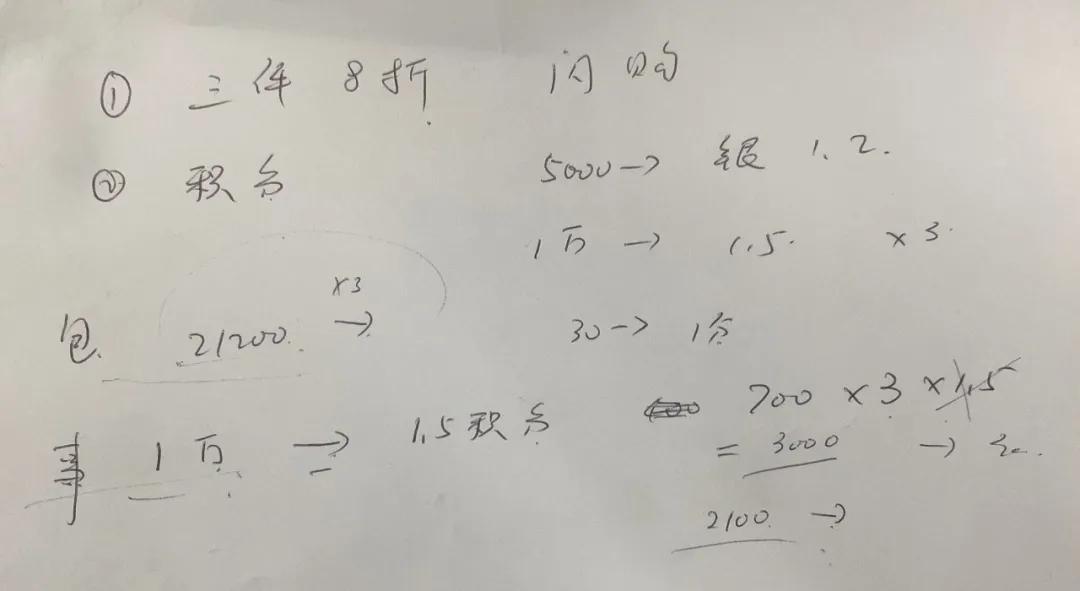 ① 三件 8折. 闪购
② 积分 5000→ 银 1.2.
1万 → 1.5. ×3.
包. 21200. ×3 → 30→ 1分
700 ×3 ×1.5
1万. → 1.5积分 = 3000 →
2100. →